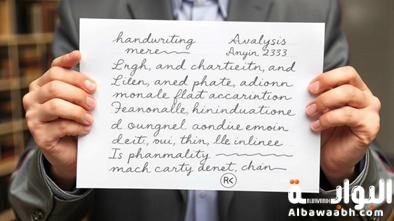 handwriting Avalysis
mere Anyin 2333
Lngh, and chartieitn, and
Lilen, aned phate, adionn
monale flast accarintion
Feanonalle, hininduatione
d oungnel. aondue emoin
deit, oui, thin, lle inlinee
Is phanmality
mach carty aenet, chan
RK
البوابة
ALBAWABH.COM
Albawaahh.com